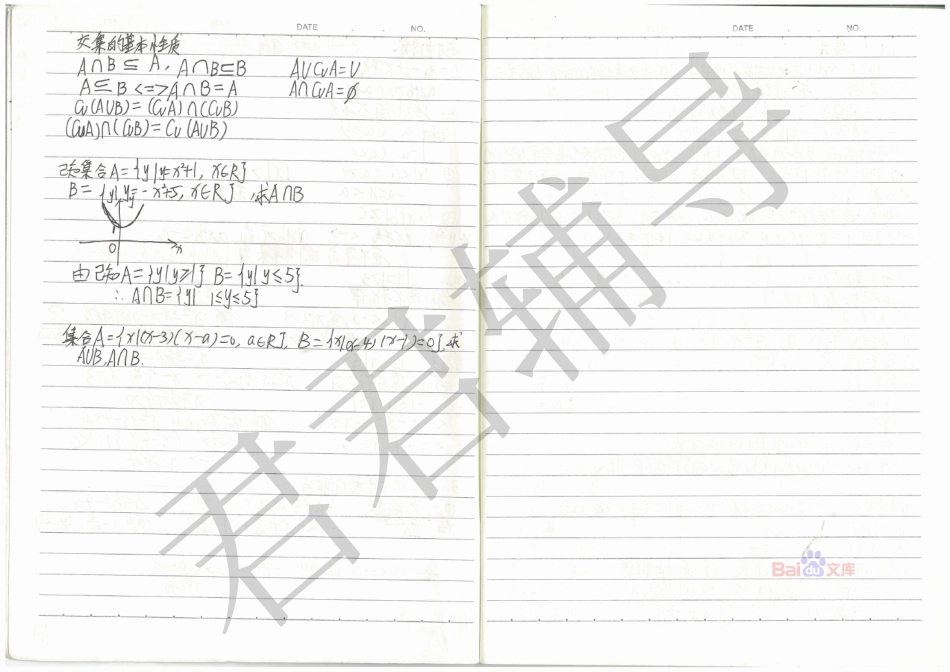 DATE . . NO.
DATE . . NO.
交集的基本性质
A∩B⊆A, A∩B⊆B A∪CuA=U
A⊆B<=>A∩B=A A∩CuA=∅
Cu(A∪B)=(CuA)∩(CuB)
(CuA)∩(CuB)=Cu(A∪B)
已知集合A={y|y=x²+1, x∈R}
B={y|y=-x²+5, x∈R},求A∩B
1
0 x
由已知A={y|y≥1} B={y|y≤5}.
∴A∩B={y| 1≤y≤5}
集合A={x|(x-3)(x-a)=0, a∈R}, B={x|(x-4)(x-1)=0},求
A∪B,A∩B.
君君辅导
Bai du 文库